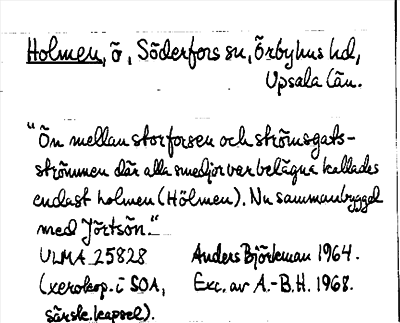 Holmen, ö, Söderfors sn, Örbyhus hd,
Upsala län.
"Ön mellan storforsen och strömsgats-
strömmen där alla smedjor var belägna kallades
endast holmen (Hölmen). Nu sammanbyggd
med Jörtsön."
ULMA 25828 Anders Björkman 1964.
(xerokop. i SOA, Exc. av A.-B.H. 1968.
särsk. kapsel).